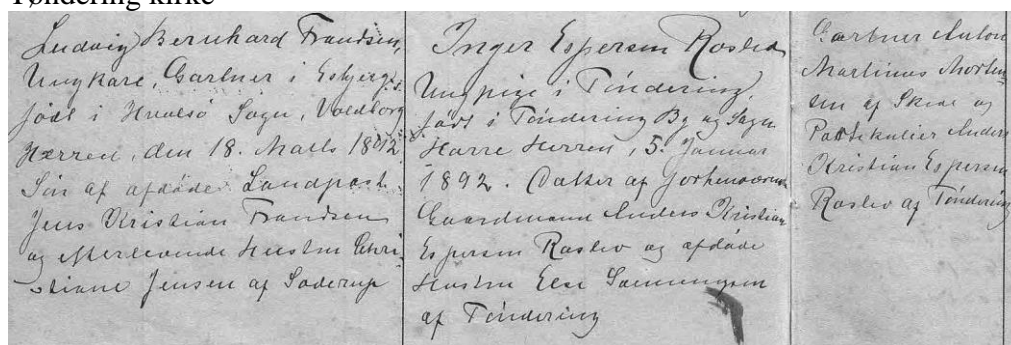 Tøndering kirke
Ludvig Bernhard Frandsen,
Ungkarl, Gartner i Esbjerg,
født i Hvalsø Sogn, Voldborg
Herred, den 18. Marts
Søn af afdøde Landpost
Jens Kristian Frandsen
og efterlevende Hustru Chri-
stiane Jensen af Soderup
Inger Espersen Roslev
Ungpige i Tøndering,
født i Tøndering By og Sogn
Harre Herred, 5. Januar
1892. Datter af forhenværende
Gaardmand Anders Kristian
Espersen Roslev og afdøde
Hustru Else
af Tøndering
Gartner Anton
Martinus Morten-
sen af Skive og
Partikulier Anders
Kristian Espersen
Roslev af Tøndering